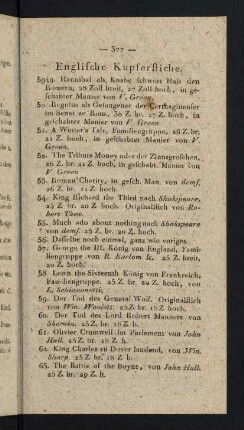 — 377 —
Englische Kupferstiche.
5949. Hannibal als Knabe schwört Haß den
Römern, 28 Zoll breit, 27 Zoll hoch, in ge-
schabter Manier von V. Green.
50. Regulus als Gefangener der Carthaginenser
im Senat zu Rom, 38 Z. br. 27 Z. hoch, in
geschabter Manier von V. Green.
51. A Winter's Tale, Familiengruppe, 26 Z. br.
21 Z. hoch, in geschabter Manier von V.
Green.
52. The Tribute Money oder der Zinsgroschen,
26 Z. br. 21 Z. hoch, in geschabt. Manier von
V. Green.
53. Roman Charity, in gesch. Man. von demf.
26 Z. br. 21 Z. hoch.
54. King Richard the Third nach Shakspeare,
25 Z. br. 20 Z. hoch. Originalstich von Ro-
bert Thew.
55. Much ado about nothing nach Shakspeare
von demf. 25 Z. br. 20 Z. hoch.
56. Dasselbe noch einmal, ganz wie voriges.
57. George the III. König von England, Fami-
liengruppe von R. Earlom &c. 25 Z. breit,
20 Z. hoch.
58. Lewis the Sixteenth König von Frankreich,
Familiengruppe. 25 Z. br. 20 Z. hoch, von
L. Schiavonetti.
59. Der Tod des General Wolf. Originalstich
von Wm. Woollett. 25 Z. br. 18 Z. h.
60. Der Tod des Lord Robert Manners von
Sherwin. 25 Z. br. 18 Z. h.
61. Olivier Cromwell im Parlement von John
Hall. 25 Z. br. 18 Z. h.
62. King Charles zu Dover landend, von Wm.
Sharp. 25 Z. br. 18 Z. h.
63. The Battle of the Boyne, von John Hall.
25 Z. br. 20 Z. h.